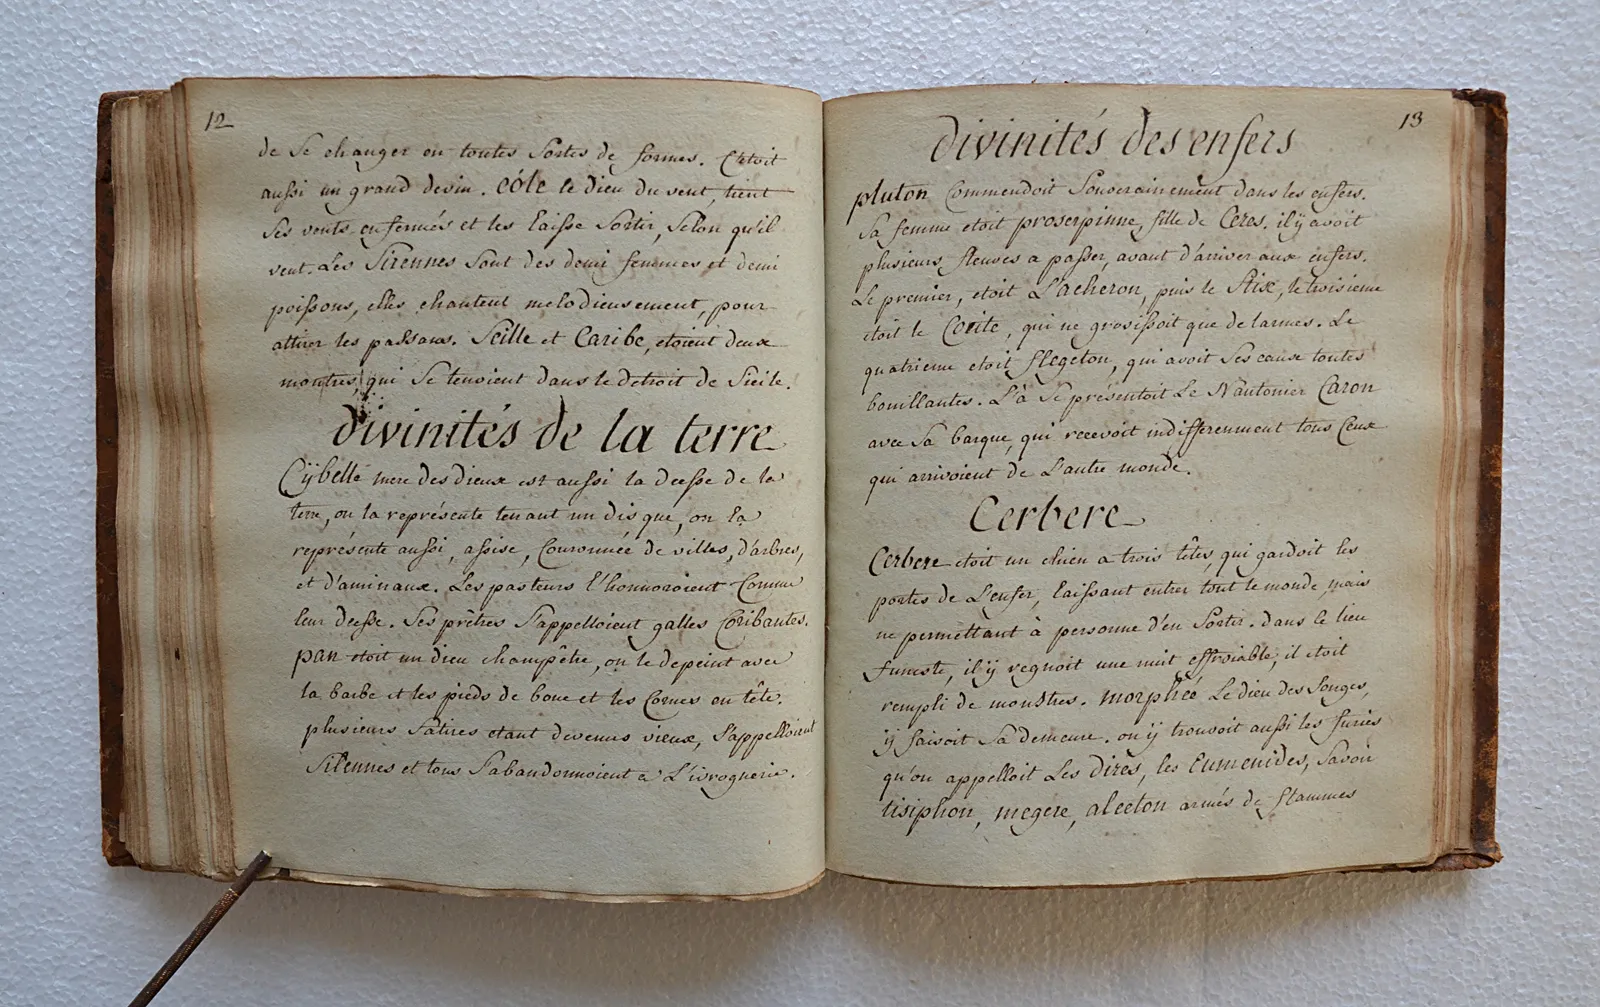 12
de se changer en toutes sortes de formes. C'etoit
aussi un grand devin. eóle le dieu du vent, tient
ses vents enfermés et les laisse sortir, selon qu'il
veut. Les Sirennes sont des demi femmes et demi
poissons, elles chantent melodieusement, pour
attirer les passans. Scille et Caribe, etoient deux
montres, qui se tenoient dans le detroit de Sicile.
divinités de la terre
Cÿbelle mere des dieux est aussi la deesse de la
terre, on la représente tenant un disque, on la
représente aussi, assise, Couronnée de villes, d'arbres,
et d'aminaux. Les pasteurs l'honnoroient Comme
leur deesse. Ses prêtres s'appelloient galles Coribantes.
pan etoit un dieu champêtre, on le depeint avec
la barbe et les pieds de bouc et les Cornes en tête.
plusieurs Satires etant devenus vieux, s'appelloient
Silennes et tous s'abandonnoient à L'ivrognerie.
13
divinités des enfers
pluton Commendoit Souverainement dans les enfers.
Sa femme etoit proserpinne, fille de Ceres. il ÿ avoit
plusieurs fleuves a passer, avant d'arriver aux enfers.
Le premier, etoit L'acheron, puis le Stix, le troisieme
etoit le Cocite, qui ne grosissoit que de larmes. Le
quatrieme etoit flegeton, qui avoit ses eaux toutes
bouillantes. L'à se présentoit Le Nautonier Caron
avec Sa barque, qui recevoit indifferenment tous Ceux
qui arrivoient de L'autre monde.
Cerbere
Cerbere etoit un chien a trois têtes, qui gardoit les
portes de L'enfer, laissant entrer tout le monde, mais
ne permettant à personne d'en Sortir. dans le lieu
funeste, il ÿ regnoit une nuit effroiable, il etoit
rempli de monstres. morphéé Le dieu des Songes,
ÿ faisoit Sa demeure. on ÿ trouvoit aussi les furies
qu'on appelloit Les Dires, les Eumenides, Savoir
tisiphon, megere, alecton armés de flammes